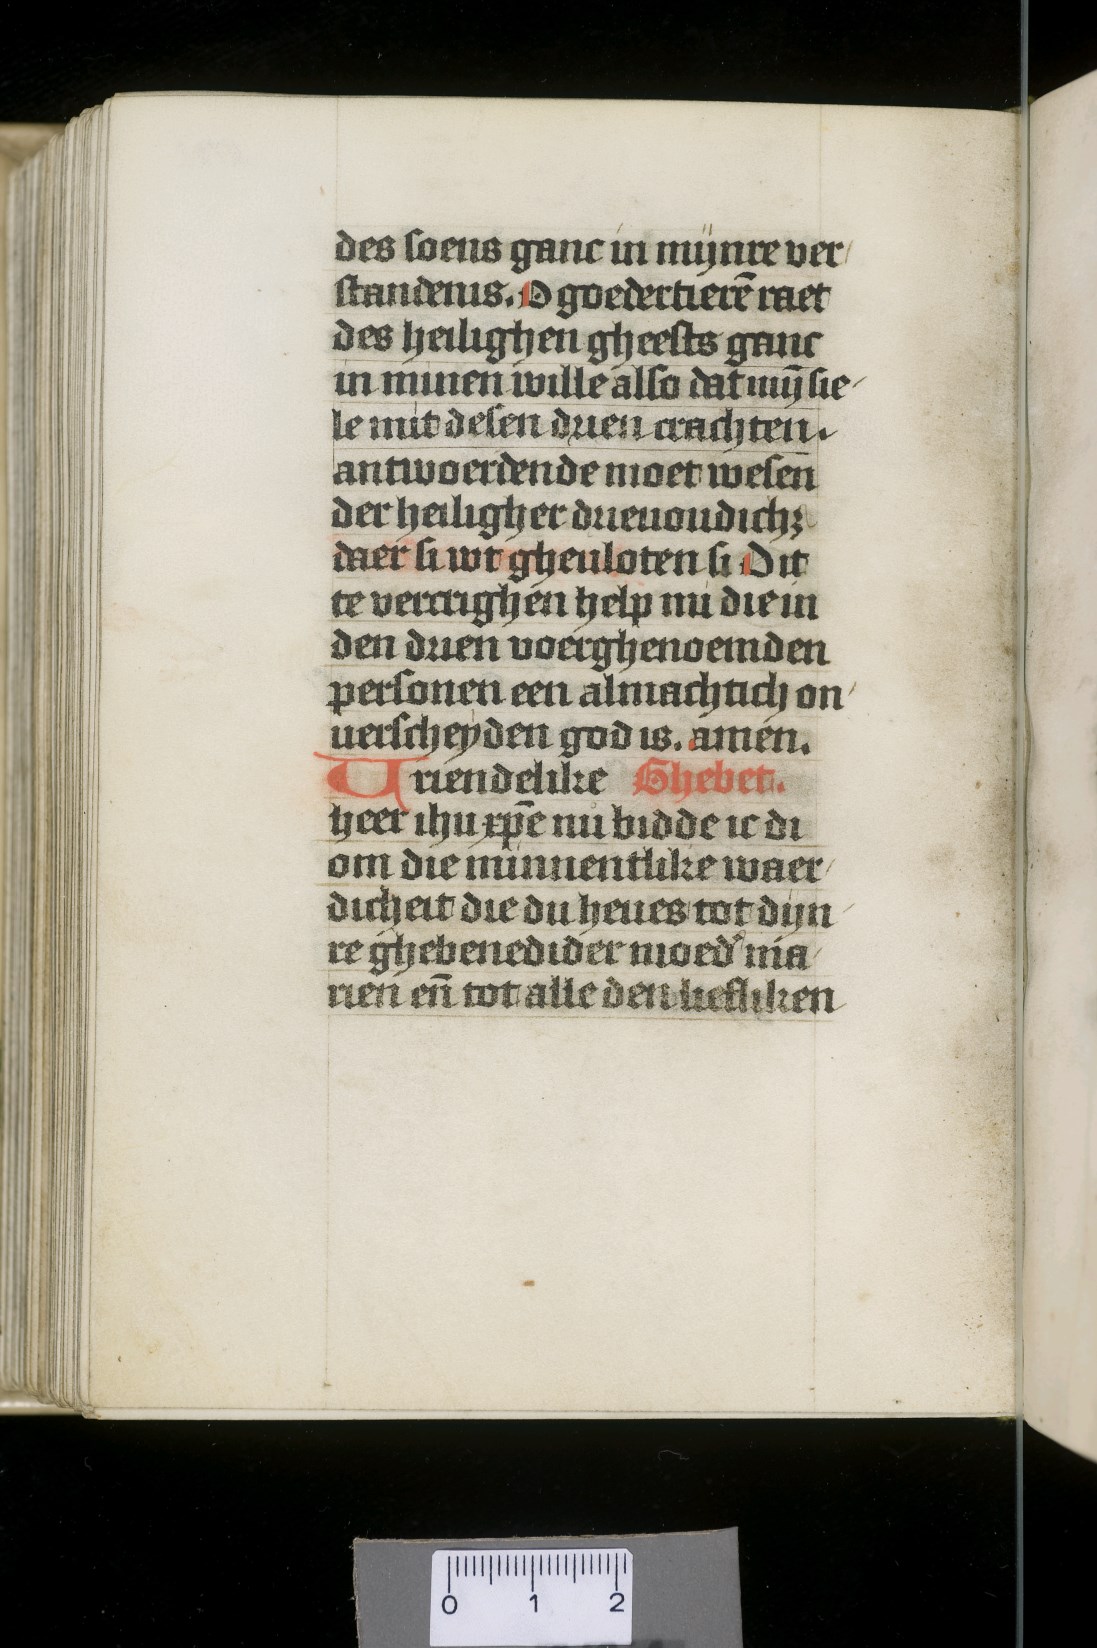 des soens ganc in mijnre ver
standenis. O goedertierē raet
des heilighen gheests ganc
in minen wille also dat mij sie
le mit desen drien crachten.
antwoerdende moet wesen̄
der heiligher drieuoudich;
daer si wt gheuloten si Dit
te vercrighen help mi die in
den drien voerghenoemden
personen een almachtich on
uerscheyden god is. amen.
Uriendelike Ghebet.
heer ihu xp̄e nu bidde ic di
om die minnentlike waer
dicheit die du heues tot dijn
re ghebenedider moed' ma
rien en̄ tot alle den liefliken
0 1 2